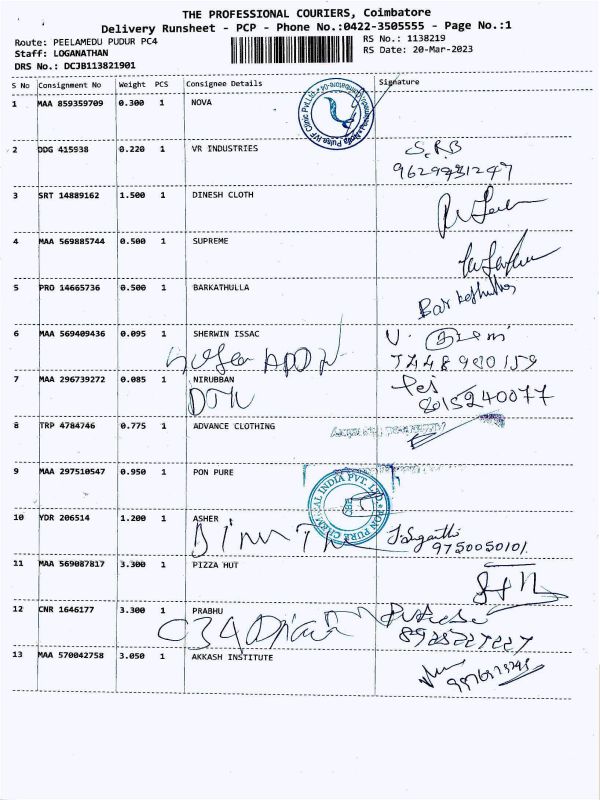 THE PROFESSIONAL COURIERS, Coimbatore
Delivery Runsheet - PCP - Phone No.:0422-3505555 - Page No.:1
Route: PEELAMEDU PUDUR PC4
RS No.: 1138219
Staff: LOGANATHAN
RS Date: 20-Mar-2023
DRS No.: DCJB113821901
S No Consignment No Weight PCS Consignee Details Signature
1 MAA 859359709 0.300 1 NOVA
2 DDG 415938 0.220 1 VR INDUSTRIES S.R.B
3 SRT 14889162 1.500 1 DINESH CLOTH
4 MAA 569885744 0.500 1 SUPREME
5 PRO 14665736 0.500 1 BARKATHULLA Barkathulla
6 MAA 569409436 0.095 1 SHERWIN ISSAC
7448980159
7 MAA 296739272 0.085 1 NIRUBBAN
8015240077
8 TRP 4784746 0.775 1 ADVANCE CLOTHING
9 MAA 297510547 0.950 1 PON PURE
PON PURE CHEMICAL INDIA PVT. LTD.
10 YDR 206514 1.200 1 ASHER
9750050101
11 MAA 569087817 3.300 1 PIZZA HUT
12 CNR 1646177 3.300 1 PRABHU
13 MAA 570042758 3.050 1 AKKASH INSTITUTE